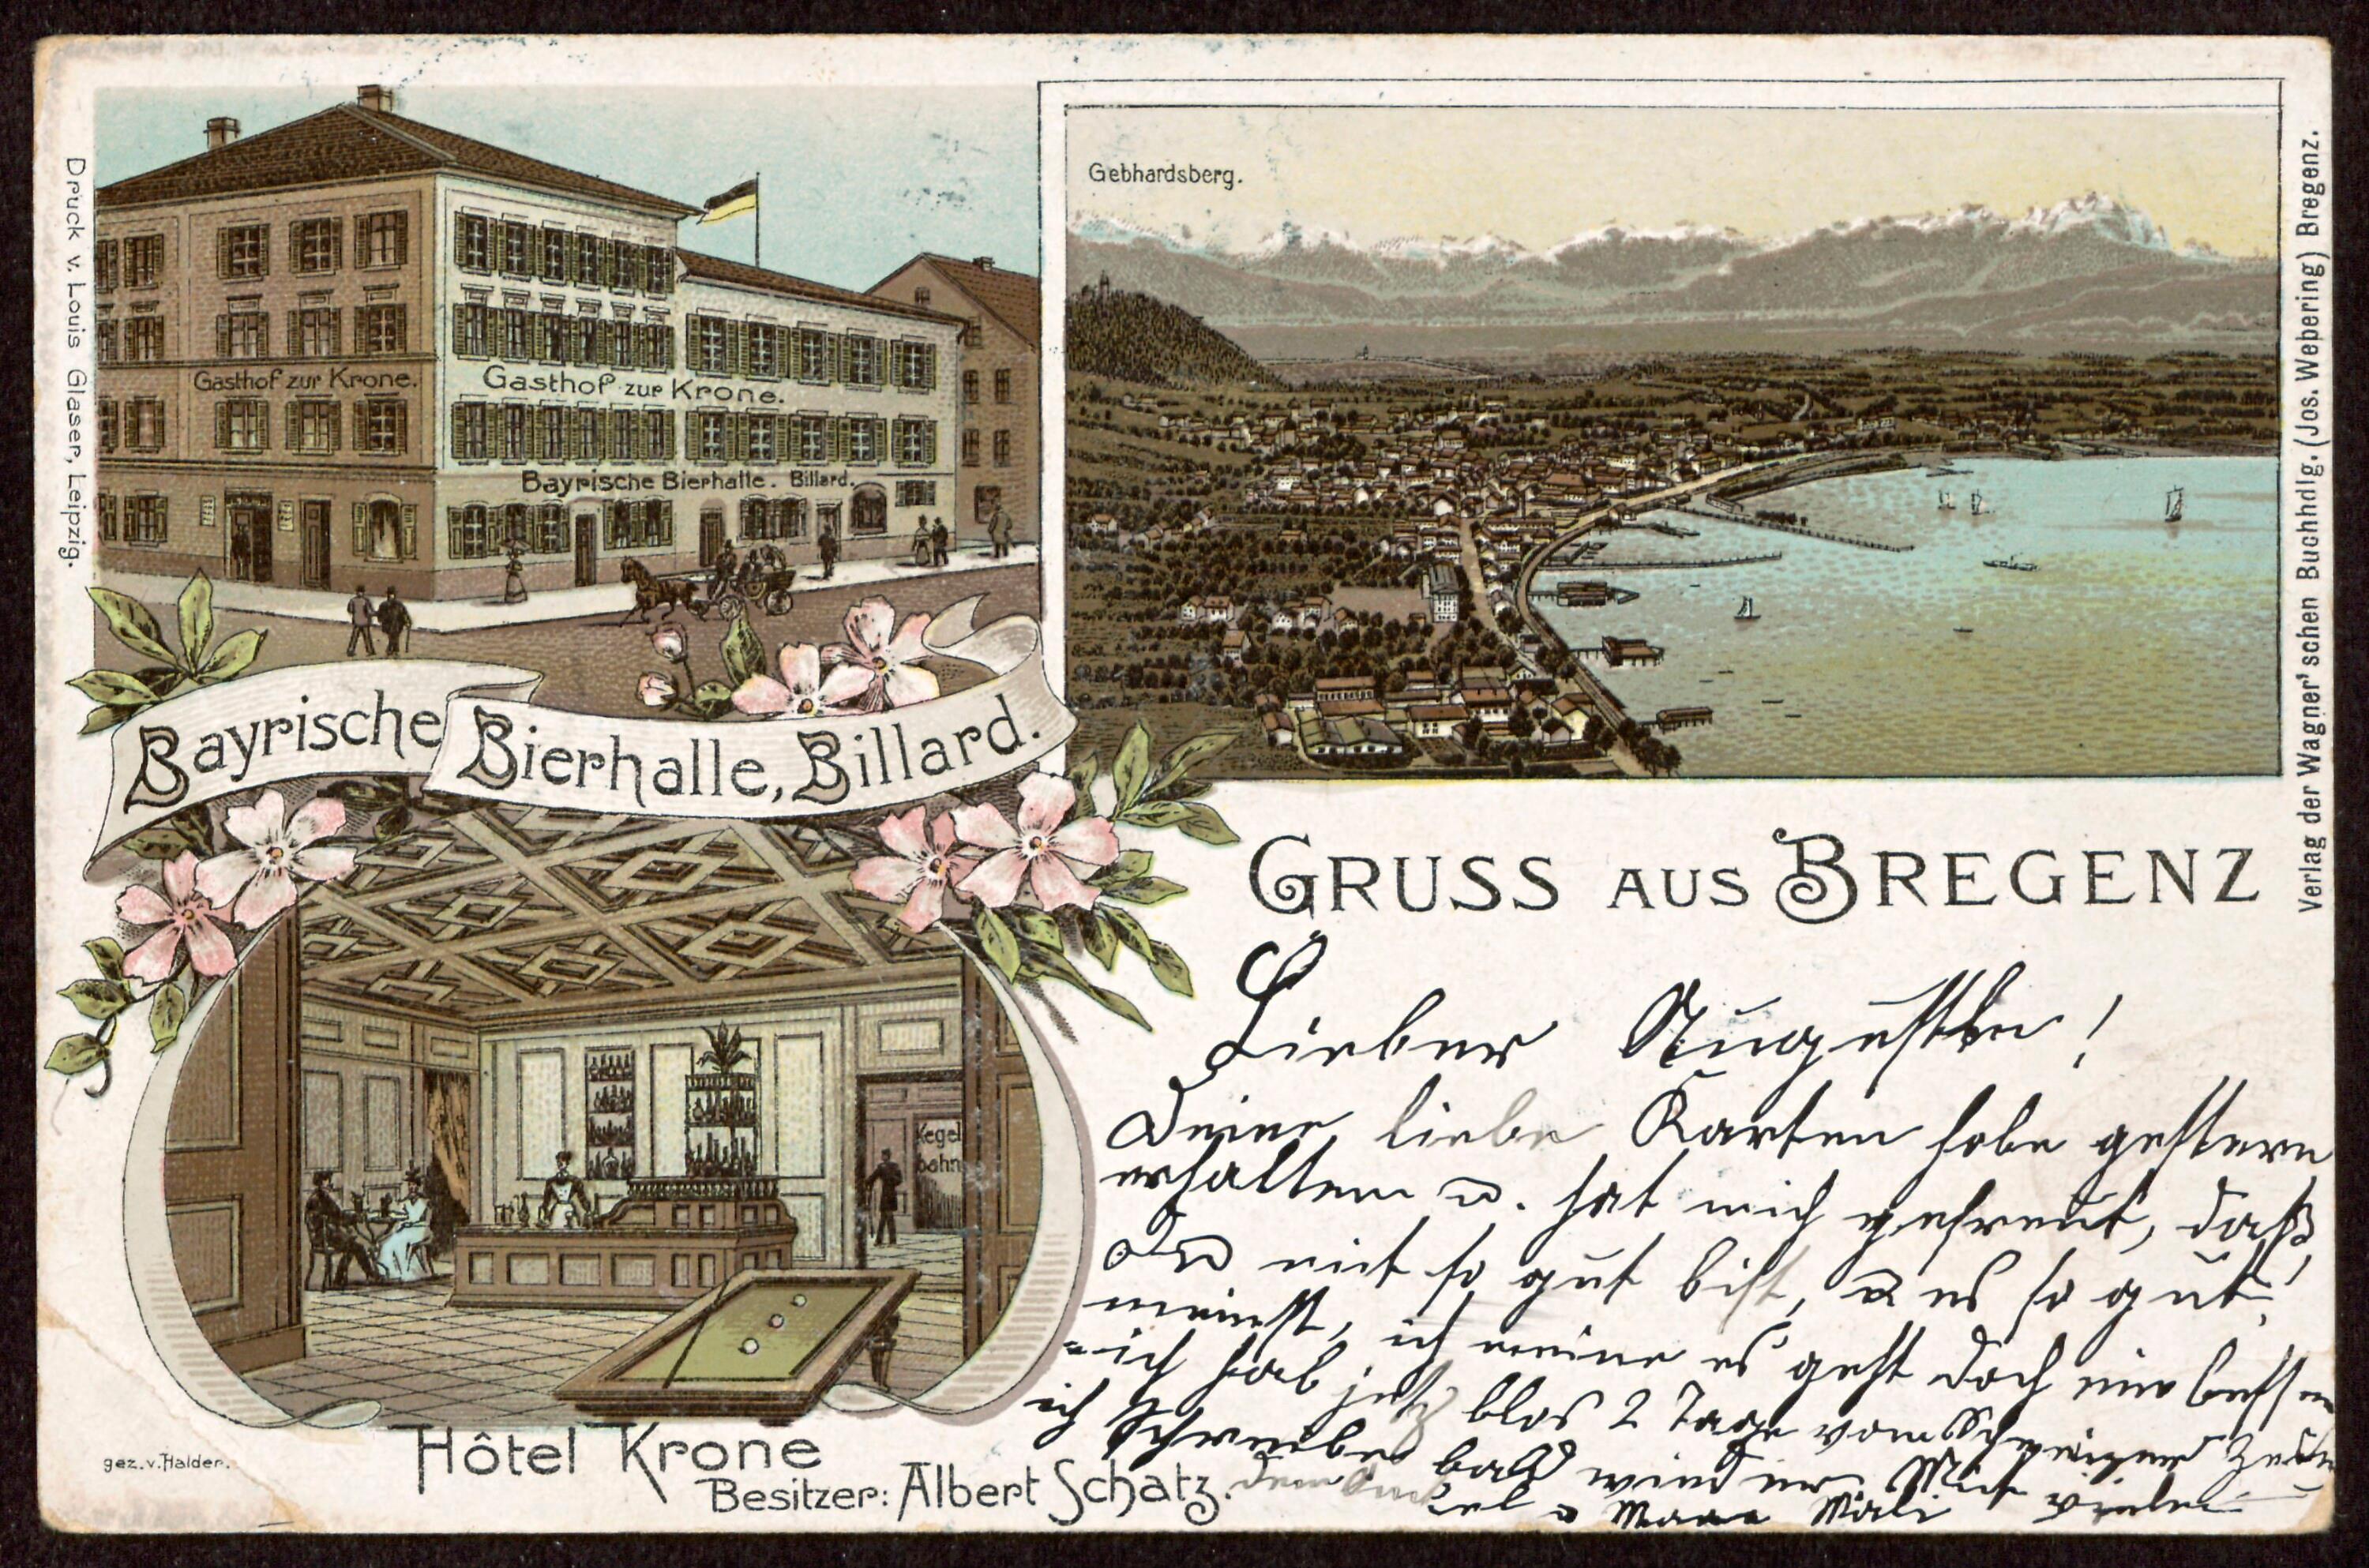 Druck v. Louis Glaser, Leipzig.
Gasthof zur Krone.
Gasthof zur Krone.
Bayrische Bierhalle. Billard.
Gebhardsberg.
Verlag der Wagner'schen Buchhdlg. (Jos. Webering) Bregenz.
Bayrische Bierhalle, Billard.
Kegel
bahn
GRUSS AUS BREGENZ
Lieber
Deine liebe Karten habe gestern
erhalten u. hat mich gefreut, daß
Du mit so gut bist, u es so gut
meinst, ich meine es geht doch
ich hab jetz blos 2 Tage vom Schweizer
ich Schreibe bald wieder Mit vielen
gez. v. Halder.
Hôtel Krone
Besitzer: Albert Schatz.